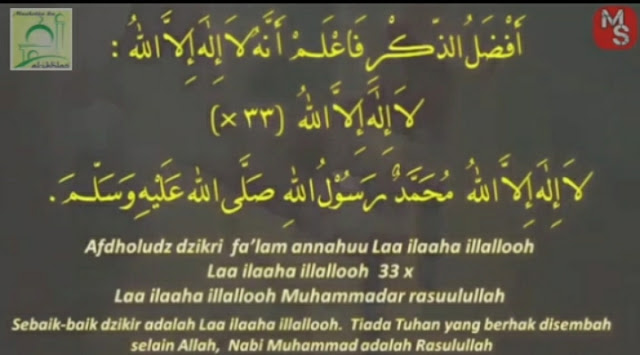 MS
أَفْضَلُ الذِّكْرِ فَاعْلَمْ أَنَّهُ لَا إِلٰهَ إِلَّا اللهُ :
لَا إِلٰهَ إِلَّا اللهُ (٣٣ ×)
لَا إِلٰهَ إِلَّا اللهُ مُحَمَّدٌ رَسُوْلُ اللهِ صَلَّى الله عَلَيْهِ وَسَلَّمَ .
Afdholudz dzikri fa’lam annahuu Laa ilaaha illallooh
Laa ilaaha illallooh 33 x
Laa ilaaha illallooh Muhammadar rasuulullah
Sebaik-baik dzikir adalah Laa ilaaha illallooh. Tiada Tuhan yang berhak disembah
selain Allah, Nabi Muhammad adalah Rasulullah